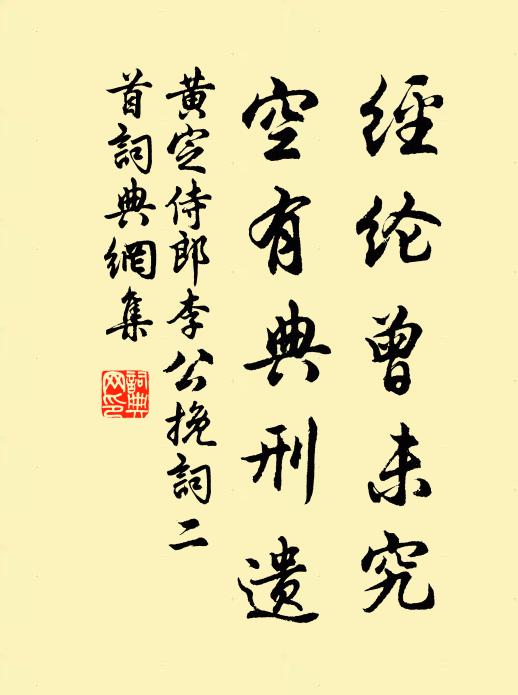 經纶曾未究
空有典刑遗
黄定侍郎李公挽詞二
首詞典網集
詞典
网印